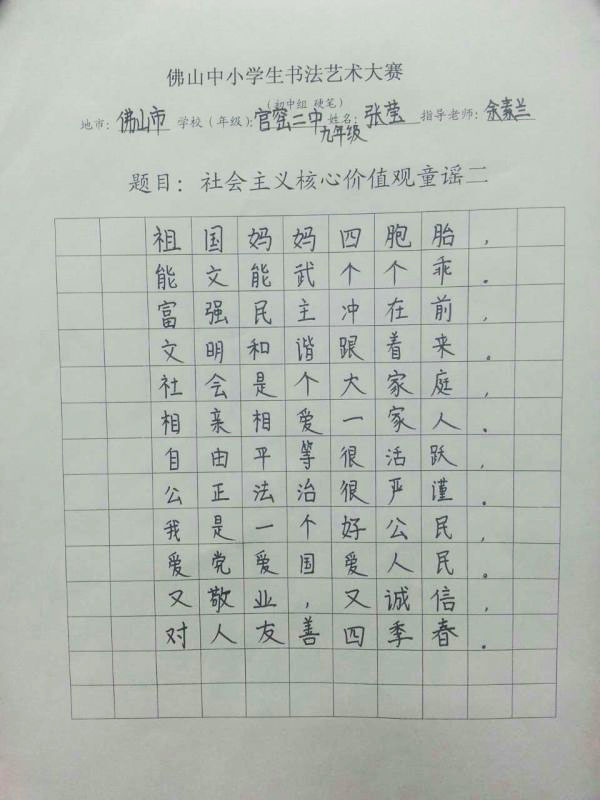 佛山中小学生书法艺术大赛
(初中组 硬笔)
地市:佛山市 学校(年级):官窑二中九年级 姓名:张莹 指导老师:余素兰
题目:社会主义核心价值观童谣二
祖国妈妈四胞胎,
能文能武个个乖。
富强民主冲在前,
文明和谐跟着来。
社会是个大家庭,
相亲相爱一家人。
自由平等很活跃,
公正法治很严谨。
我是一个好公民,
爱党爱国爱人民。
又敬业,又诚信,
对人友善四季春。